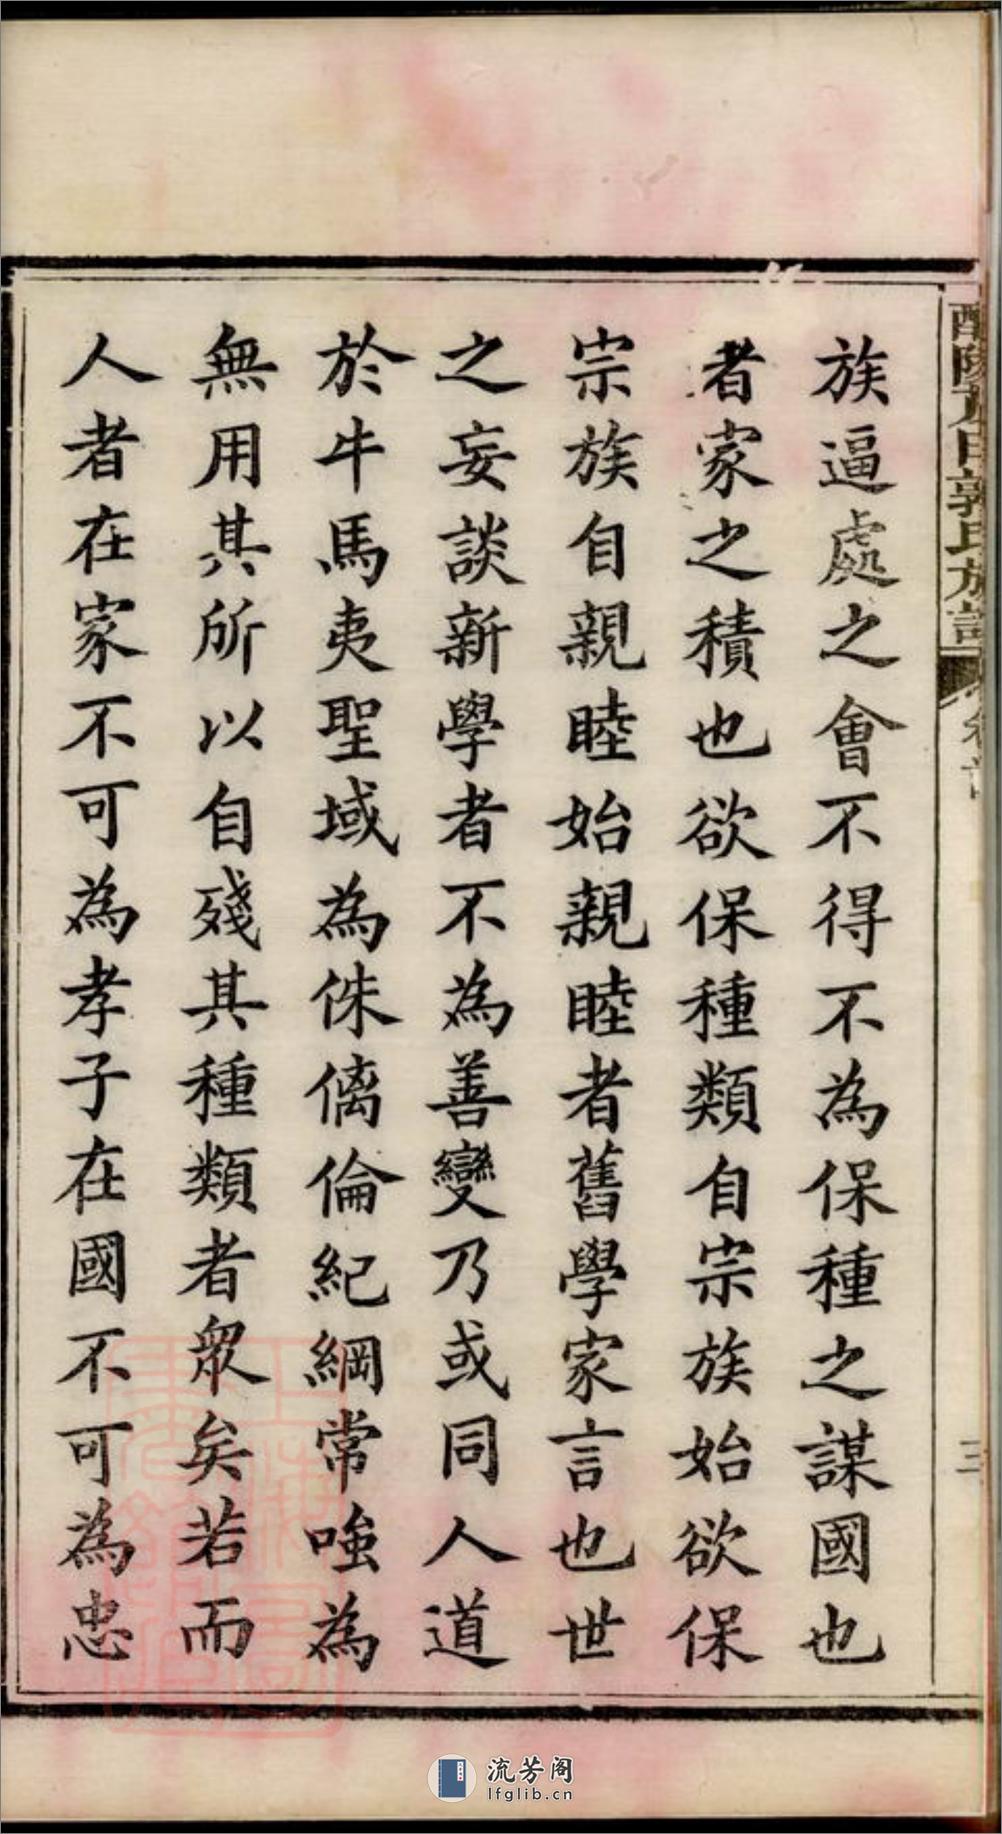 族逼處之會不得不為保種之謀國也
者家之積也欲保種類自宗族始欲保
宗族自親睦始親睦者舊學家言也世
之妄談新學者不為善變乃或同人道
於牛馬夷聖域為侏㒧倫紀綱常嗤為
無用其所以自殘其種類者眾矣若而
人者在家不可為孝子在國不可為忠
郭氏族譜
三
流芳阁
lfglib.cn